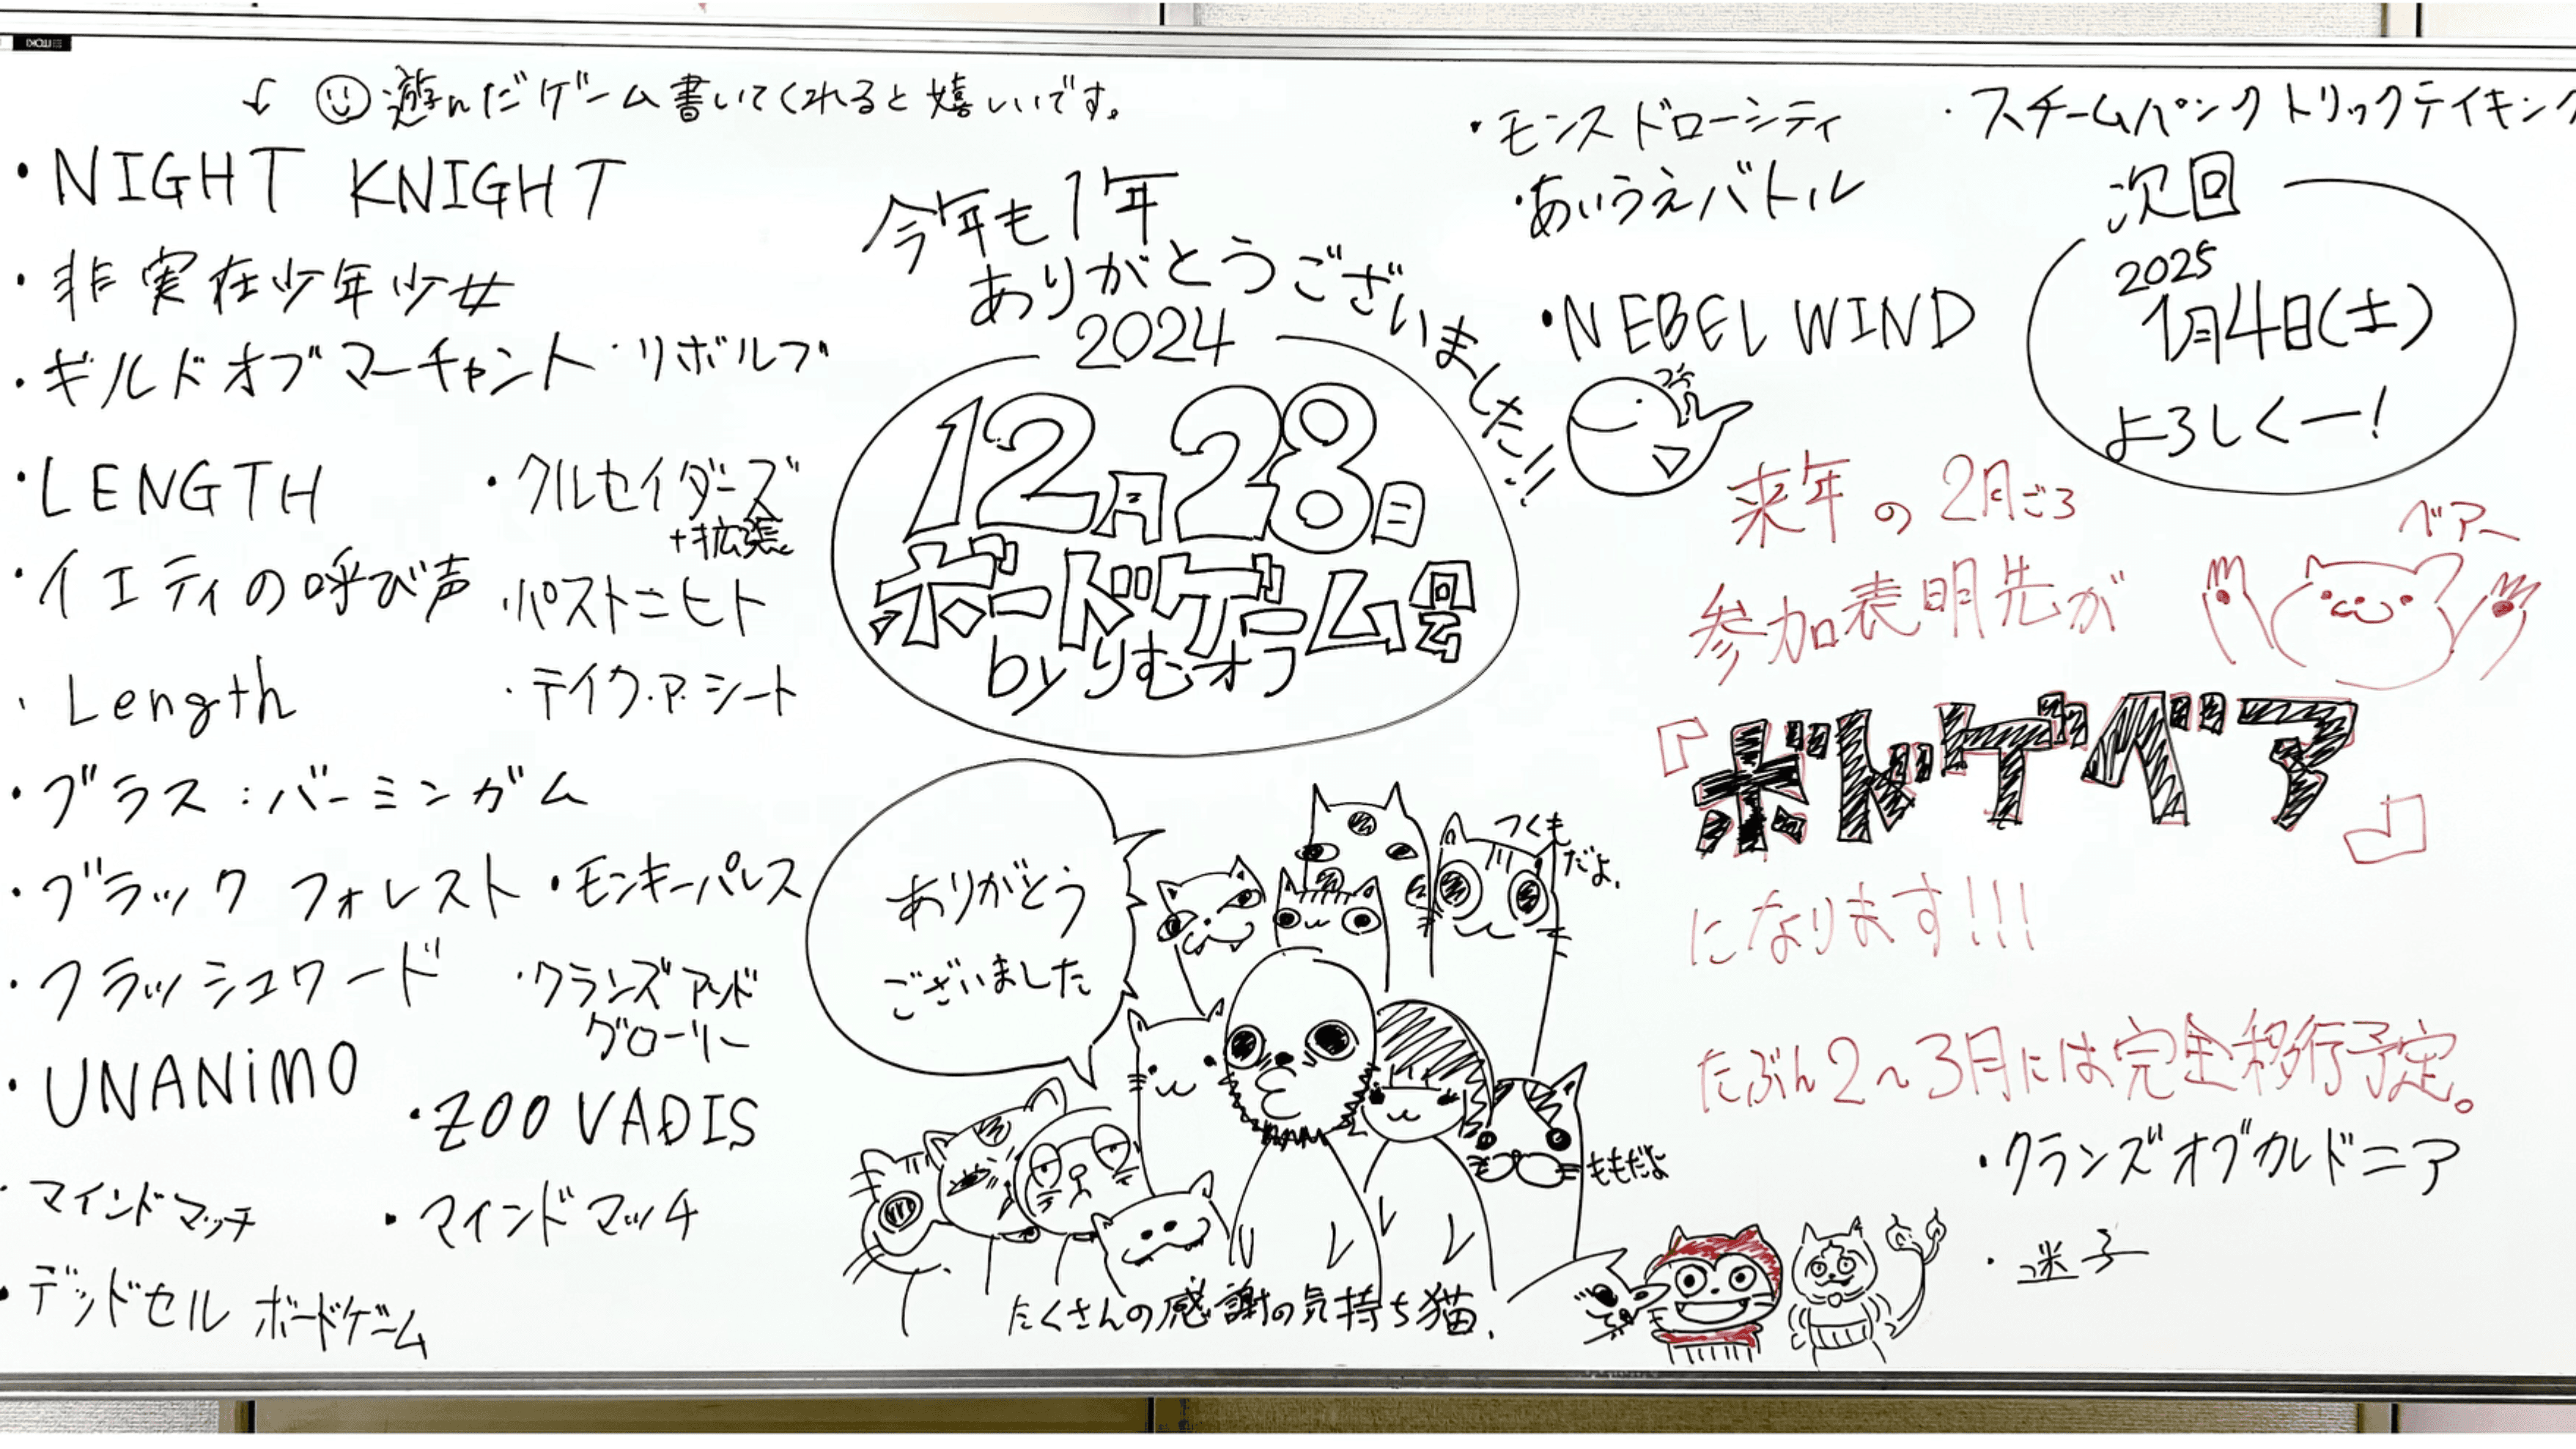 遊んだゲーム書いてくれると嬉しいです。
・NIGHT KNIGHT
・非実在少年少女
・ギルドオブマーチャント ・リボルブ
・LENGTH ・クルセイダーズ
+拡張
・イエティの呼び声 ・パストニヒト
・Length ・テイク・ア・シート
・ブラス：バーミンガム
・ブラック フォレスト ・モンキーパレス
・フラッシュワード ・クランズ アンド
グローリー
・UNANiMO
・ZOO VADIS
・マインドマッチ ・マインドマッチ
・デッドセル ボードゲーム
今年も1年
ありがとうございました!!
2024
12月28日
ボードゲーム会
by りむオフ
ありがとう
ございました
つくも
だよ.
ももだよ
たくさんの感謝の気持ち猫.
・モンスドローシティ
・あいうえバトル
・NEBEL WIND
・スチームパンクトリックテイキング
次回
2025
1月4日(土)
よろしくー!
来年の2月ごろ
参加表明先が
ベアー
『ボドゲベア』
になります!!!
たぶん2〜3月には完全移行予定。
・クランズオブカルドニア
・迷子